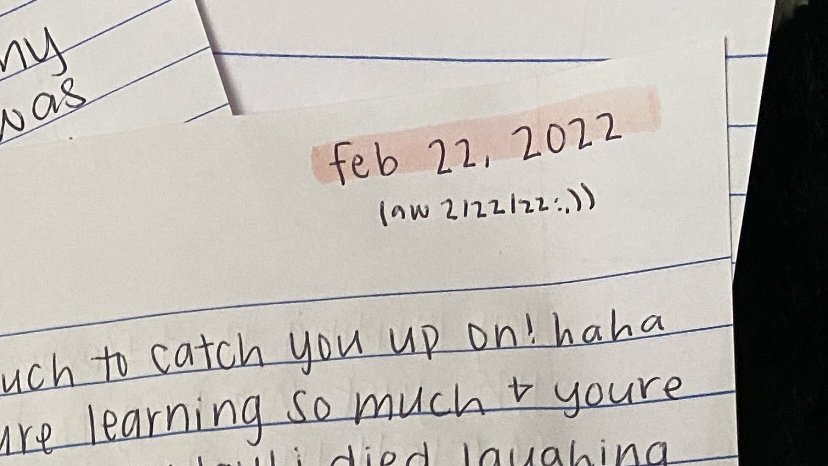 ny
was
feb 22, 2022
(aw 2/22/22:,))
uch to catch you up on! haha
ure learning so much & youre
i died laughing